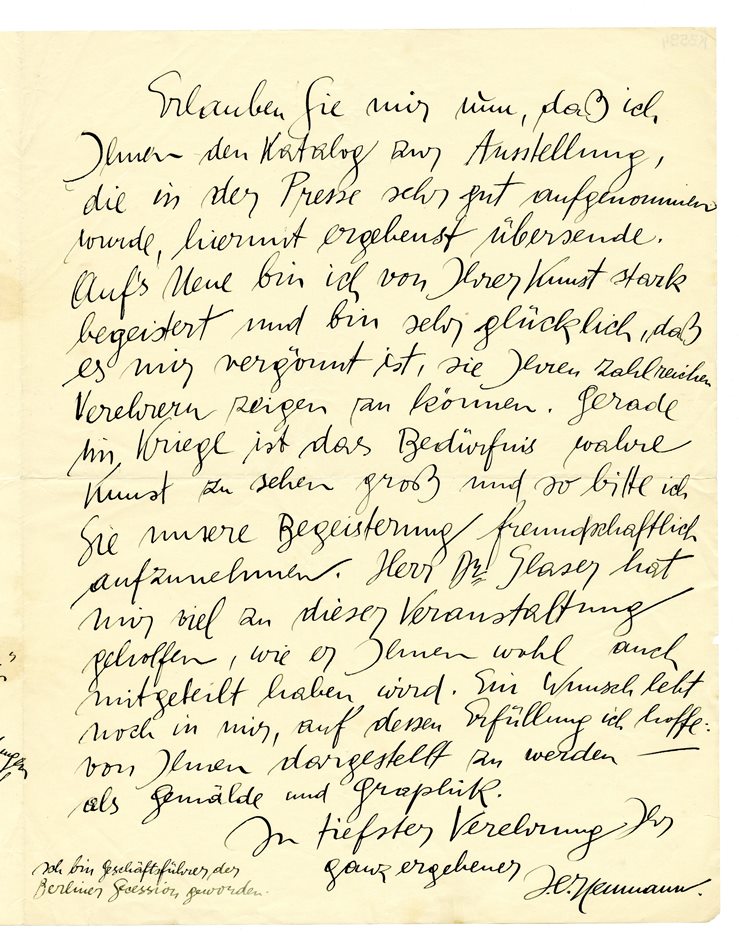 Erlauben Sie mir nun, daß ich
Ihnen den Katalog zur Ausstellung,
die in der Presse sehr gut aufgenommen
wurde, hiermit ergebenst übersende.
Auf's Neue bin ich von Ihrer Kunst stark
begeistert und bin sehr glücklich, daß
es mir vergönnt ist, sie Ihren zahlreichen
Verehrern zeigen zu können. Gerade
im Kriege ist das Bedürfnis wahre
Kunst zu sehen groß und so bitte ich
Sie unsere Begeisterung freundschaftlich
aufzunehmen. Herr Dr. Glaser hat
mir viel zu dieser Veranstaltung
geholfen, wie er Ihnen wohl auch
mitgeteilt haben wird. Ein Wunsch lebt
noch in mir, auf dessen Erfüllung ich hoffe:
von Ihnen dargestellt zu werden —
als Gemälde und Graphik.
In tiefster Verehrung Ihr
ganz ergebener
J.B. Neumann.
Ich bin Geschäftsführer der
Berliner Secession geworden.
K2594